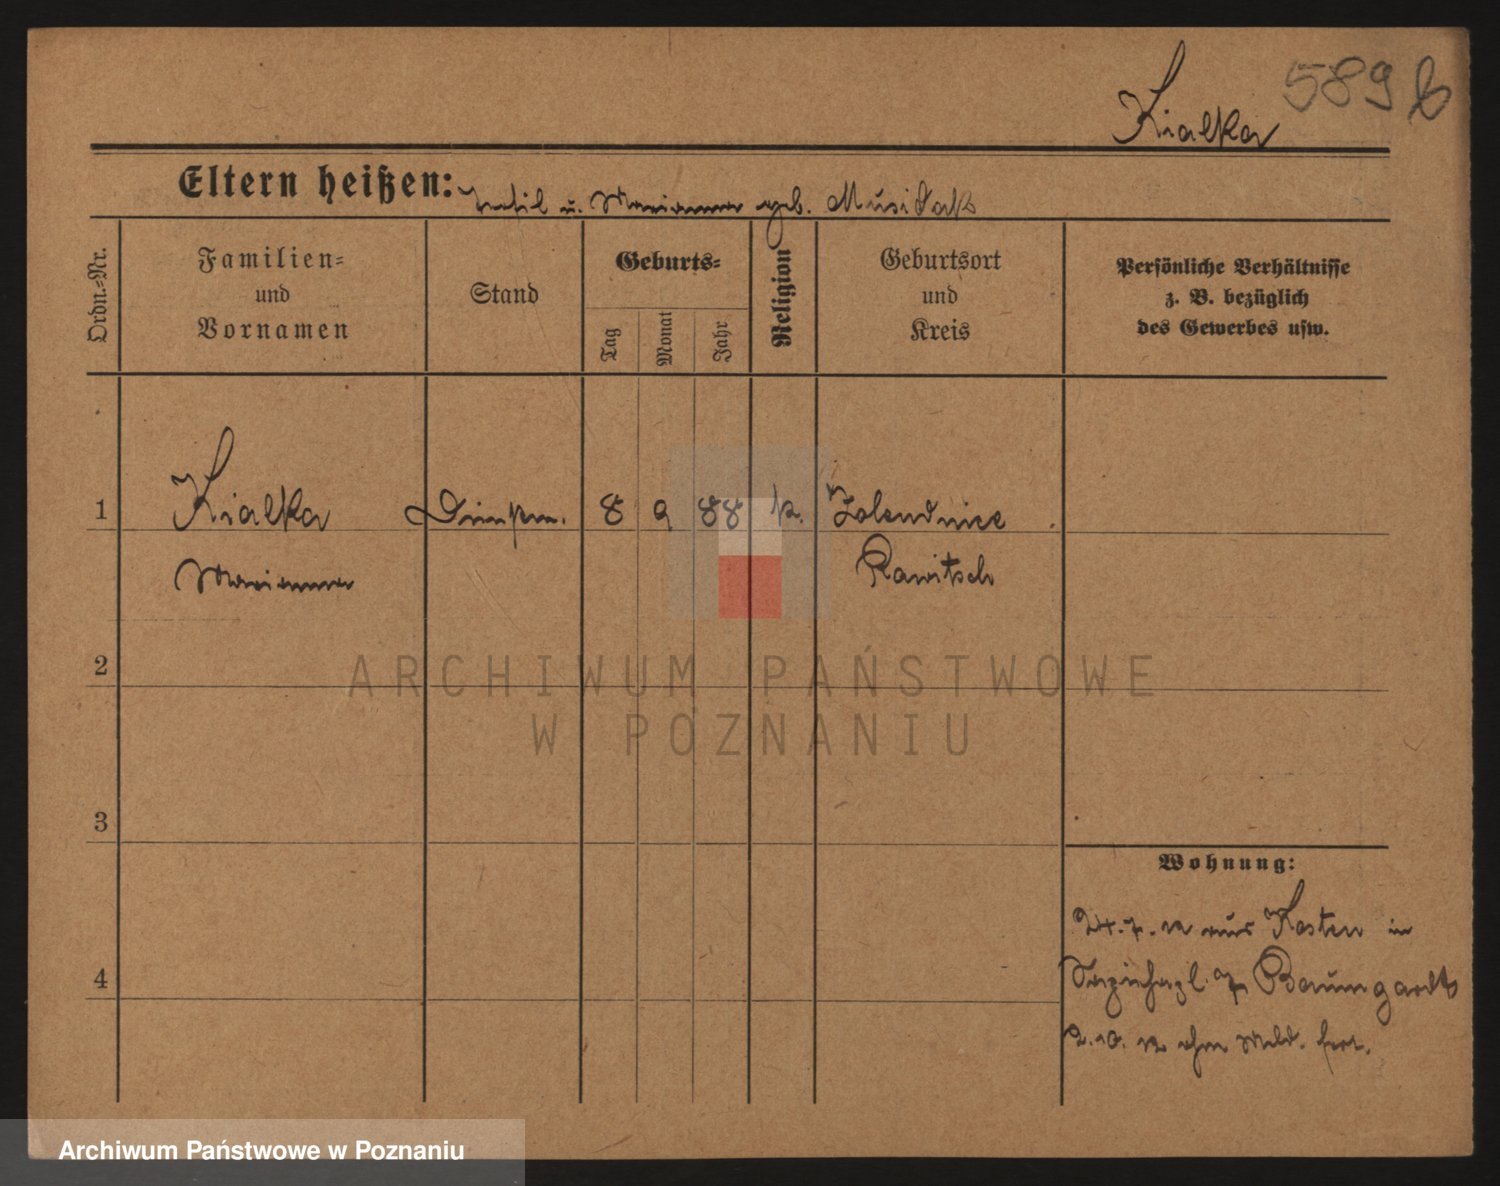 Kialka 589 b
Eltern heißen: u. Marianna geb. Musidak
Ordn.-Nr.
Familien-
und
Vornamen
Stand
Geburts-
Tag
Monat
Jahr
Religion
Geburtsort
und
Kreis
Persönliche Verhältnisse
z. B. bezüglich
des Gewerbes usw.
1 Kialka 8 9 88 k.
Marianna Rawitsch
2
3
4
Wohnung:
24.7.12 aus Kosten in
Baumgardt
2.10.12 ohne Meld. fort.
ARCHIWUM PAŃSTWOWE
W POZNANIU
Archiwum Państwowe w Poznaniu